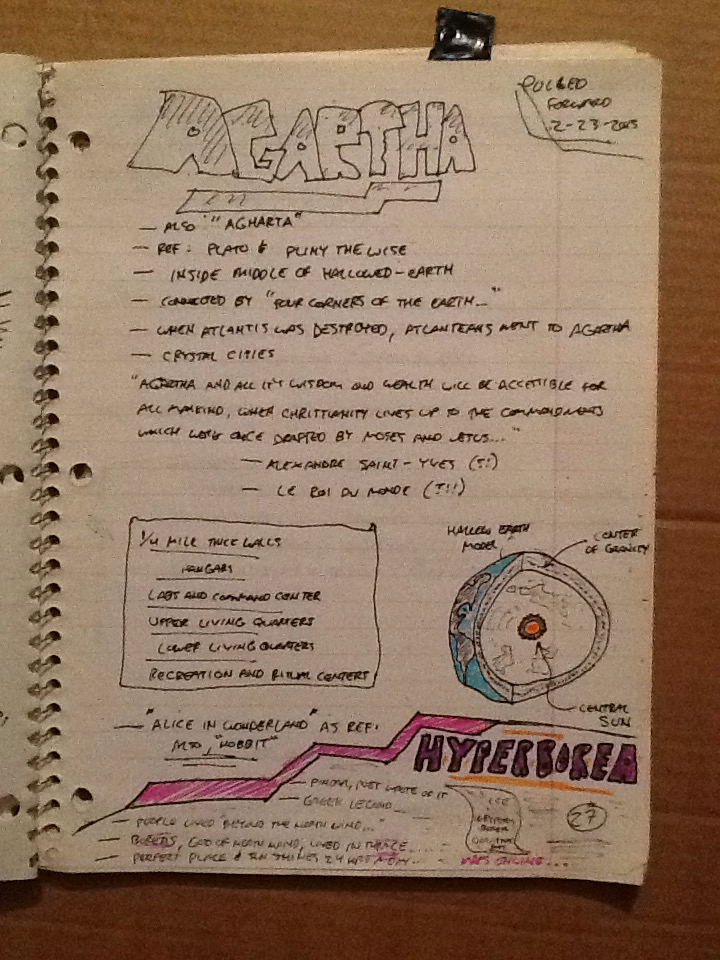 AGARTHA
PULLED
FORWARD
2-23-2015
— ALSO "AGHARTA"
— REF: PLATO & PLINY THE WISE
— INSIDE MIDDLE OF HALLOWED-EARTH
— CONNECTED BY "FOUR CORNERS OF THE EARTH..."
— WHEN ATLANTIS WAS DESTROYED, ATLANTEANS WENT TO AGARTHA
— CRYSTAL CITIES
"AGARTHA AND ALL IT'S WISDOM AND WEALTH WILL BE ACCESSIBLE FOR
ALL MANKIND, WHEN CHRISTIANITY LIVES UP TO THE COMMANDMENTS
WHICH WERE ONCE DRAFTED BY MOSES AND JESUS..."
— ALEXANDRE SAINT-YVES
— LE ROI DU MONDE
1/4 MILE THICK WALLS
HANGARS
LABS AND COMMAND CENTER
UPPER LIVING QUARTERS
LOWER LIVING QUARTERS
RECREATION AND RITUAL CENTERS
HALLOW EARTH
MODEL
CENTER
OF GRAVITY
CENTRAL
SUN
— "ALICE IN WONDERLAND" AS REF:
ALSO, "HOBBIT"
HYPERBOREA
— PINDAR, POET WROTE OF IT
— GREEK LEGEND
— PEOPLE LIVED "BEYOND THE NORTH WIND..."
— BOREAS, GOD OF NORTH WIND, LIVED IN THRACE....
— PERFECT PLACE & SUN SHINES 24 HRS A DAY...
27